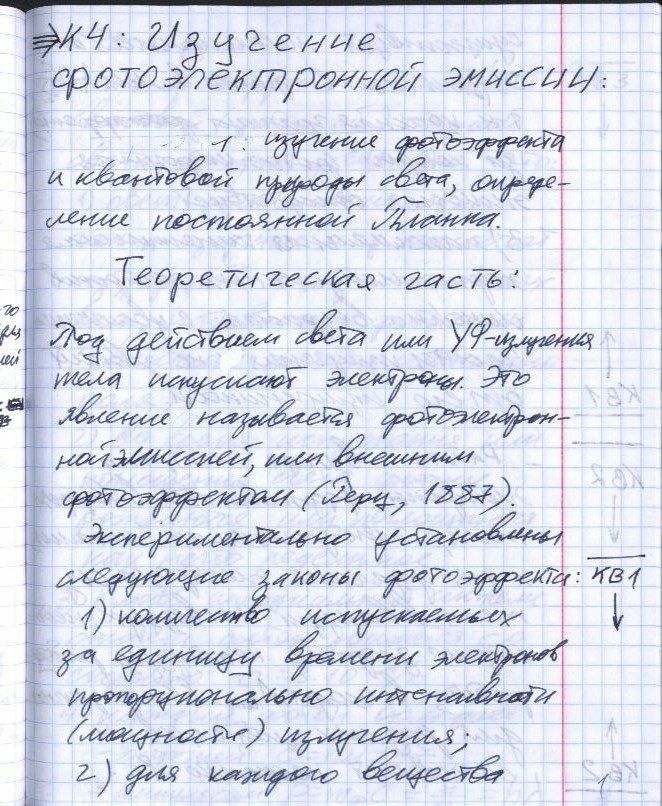 К4: Изучение
фотоэлектронной эмиссии:
1: изучение фотоэффекта
и квантовой природы света, опреде-
ление постоянной Планка.
Теоретическая часть:
Под действием света или УФ-излучения
тела испускают электроны. Это
явление называется фотоэлектрон-
ной эмиссией, или внешним
фотоэффектом (Герц, 1887).
Экспериментально установлены
следующие законы фотоэффекта: КВ1
1) количество испускаемых
за единицу времени электронов
пропорционально интенсивности
(мощности) излучения;
2) для каждого вещества
1